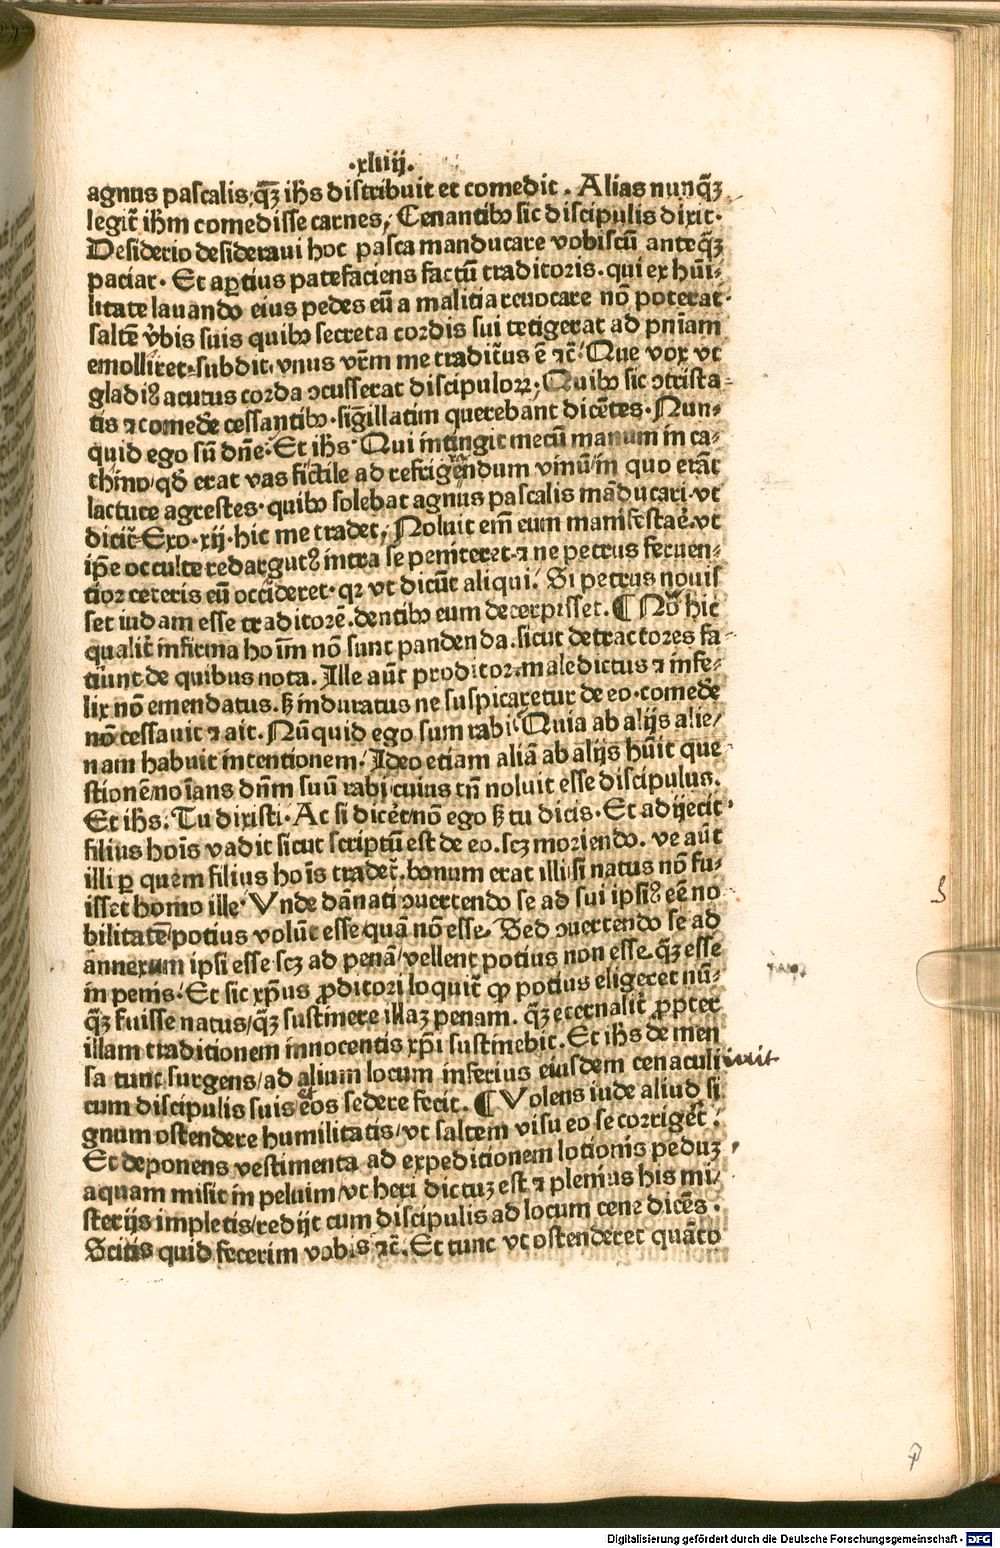 ·xliiij.
agnus pascalis/qȝ̄ ih̄s distribuit et comedit. Alias nunqȝ̄
legit̄ ih̄m comedisse carnes, Cenantibꝰ sic discipulis dixit·
Desiderio desideraui hoc pasca manducare vobiscū anteqȝ̄
paciar· Et aꝑtius patefaciens factū traditoris· qui ex hūi⸗
litate lauando eius pedes eū a malitia reuocare nō poterat·
saltē v̄bis suis quibꝰ secreta cordis sui tetigerat ad pn̄iam
emolliret·subdit· vnus vr̄m me traditur̄us ē ⁊c̄· Que vox vt
gladiꝰ acutus corda ↄcusserat discipuloꝝ, Quibꝰ sic ↄtrista⸗
tis ⁊ comede̅ cessantibꝰ· sig̅illatim querebant dicētes· Nun⸗
quid ego sū dn̄e· Et ih̄s· Qui intingit mecū manum in ca⸗
thino/qd̄ erat vas fictile ad refrigendum vinū/in quo erāt
lactuce agrestes· quibꝰ solebat agnus pascalis māducari·vt
dicit̄ Exo·xij· hic me tradet, Noluit em̄ eum manifestare̅·vt
ip̄e occulte redargutꝰ intra se peniteret·⁊ ne petrus feruen⸗
tior ceteris eū occideret· qꝛ vt dicūt aliqui/ Si petrus nouis
set iudam esse traditorē·dentibꝰ eum decerpisset. ¶ No̅ hic
qualit̄ infirma hoīm nō sunt pandenda·sicut detractores fa⸗
tiunt de quibus nota. Ille aūt proditor·maledictus ⁊ infe⸗
lix nō emendatus·ꝫ induratus ne suspicaretur de eo·comede̅
nō cessauit ⁊ ait· Nūquid ego sum rabi· Quia ab alijs alie/
nam habuit intentionem/ Ideo etiam aliā ab alijs hūit que
stionē/noīans dn̄m suū rabi·cuius tn̄ noluit esse discipulus·
Et ih̄s· Tu dixisti· Ac si dicet̄ nō ego ꝫ tu dicis· Et adijecit
filius hoīs vadit sicut scriptū est de eo·scȝ moriendo· ve aūt
illi ꝑ quem filius hoīs tradet̄·bonum erat illi si natus nō fu⸗
isset homo ille· Vnde dānati ↄuertendo se ad sui ipsiꝰ eē no
bilitatē/potius volūt esse/quā nō esse· Sed ↄuertendo se ad
annexum ipsi esse scȝ ad penā/vellent potius non esse·qȝ̄ esse
in penis· Et sic xp̄us ꝓditori loquit̄ ꝙ potius eligeret nū⸗
qȝ̄ fuisse natus/qȝ̄ sustinere illaȝ penam· qȝ̄ eternalit̄ ꝓpter
illam traditionem innocentis xp̄i sustinebit· Et ih̄s de men
sa tunc surgens/ad alium locum inferius eiusdem cenaculi iuit
cum discipulis suis eos sedere fecit. ¶ Volens iude aliud si
gnum ostendere humilitatis/vt saltem visu eo se corriget̄·
Et deponens vestimenta ad expeditionem lotionis peduȝ
aquam misit in peluim/vt heri dictuȝ est ⁊ plenius his mi/
sterijs impletis/redijt cum discipulis ad locum cene dicēs·
Scitis quid fecerim vobis ⁊c̄. Et tunc vt ostenderet quāto
Digitalisierung gefördert durch die Deutsche Forschungsgemeinschaft - DFG